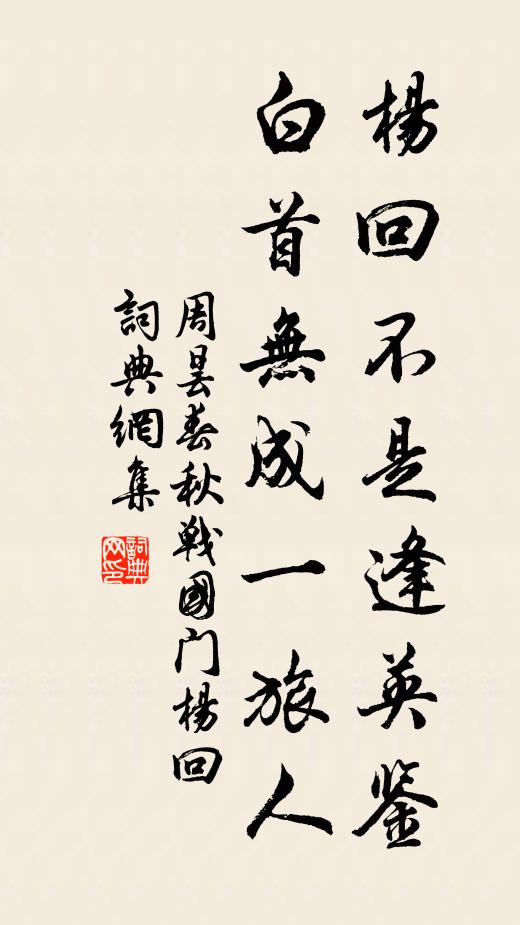 楊回不是逢英鑒
白首無成一旅人
周昙春秋戦國门楊回
詞典網集
詞典网印